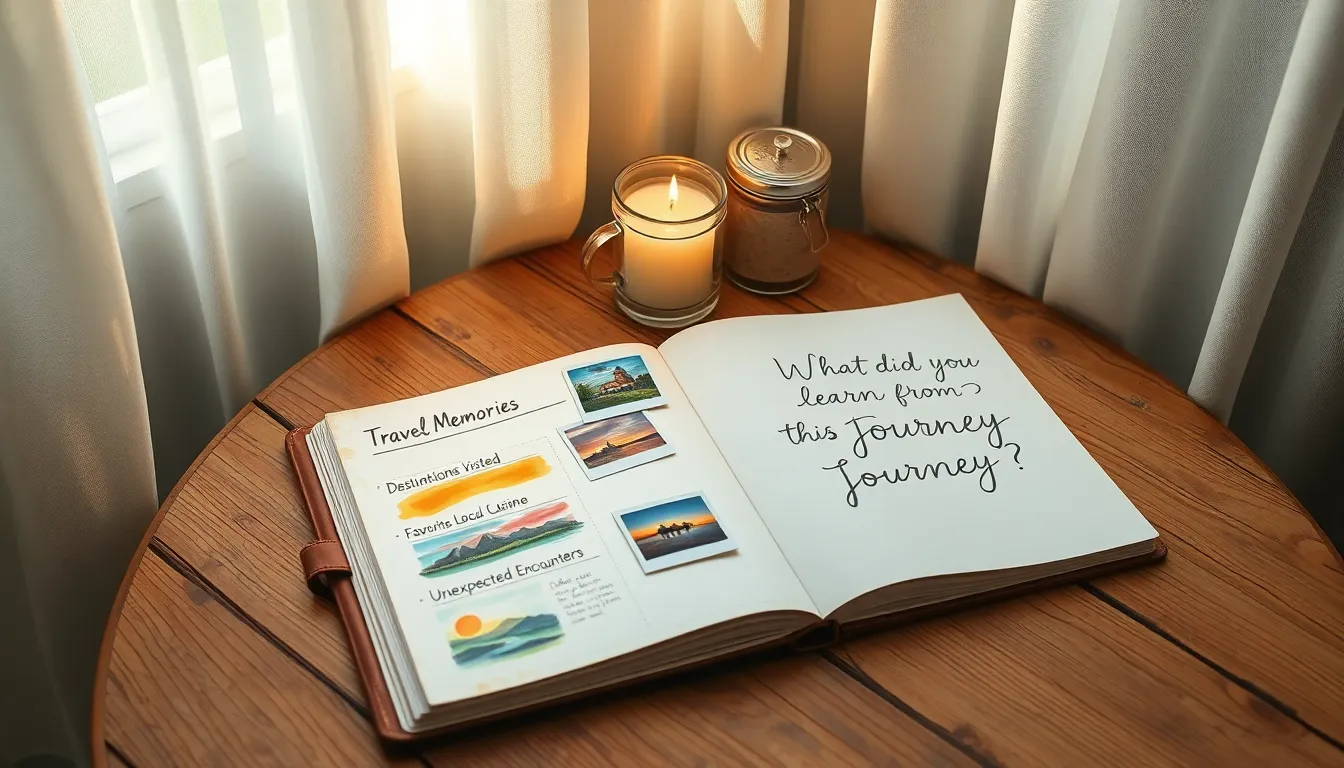 Travel Memories
Destinations Visited
Favorite Local
Unexpected Encounters
What did you
learn from
this Journey
Journey?